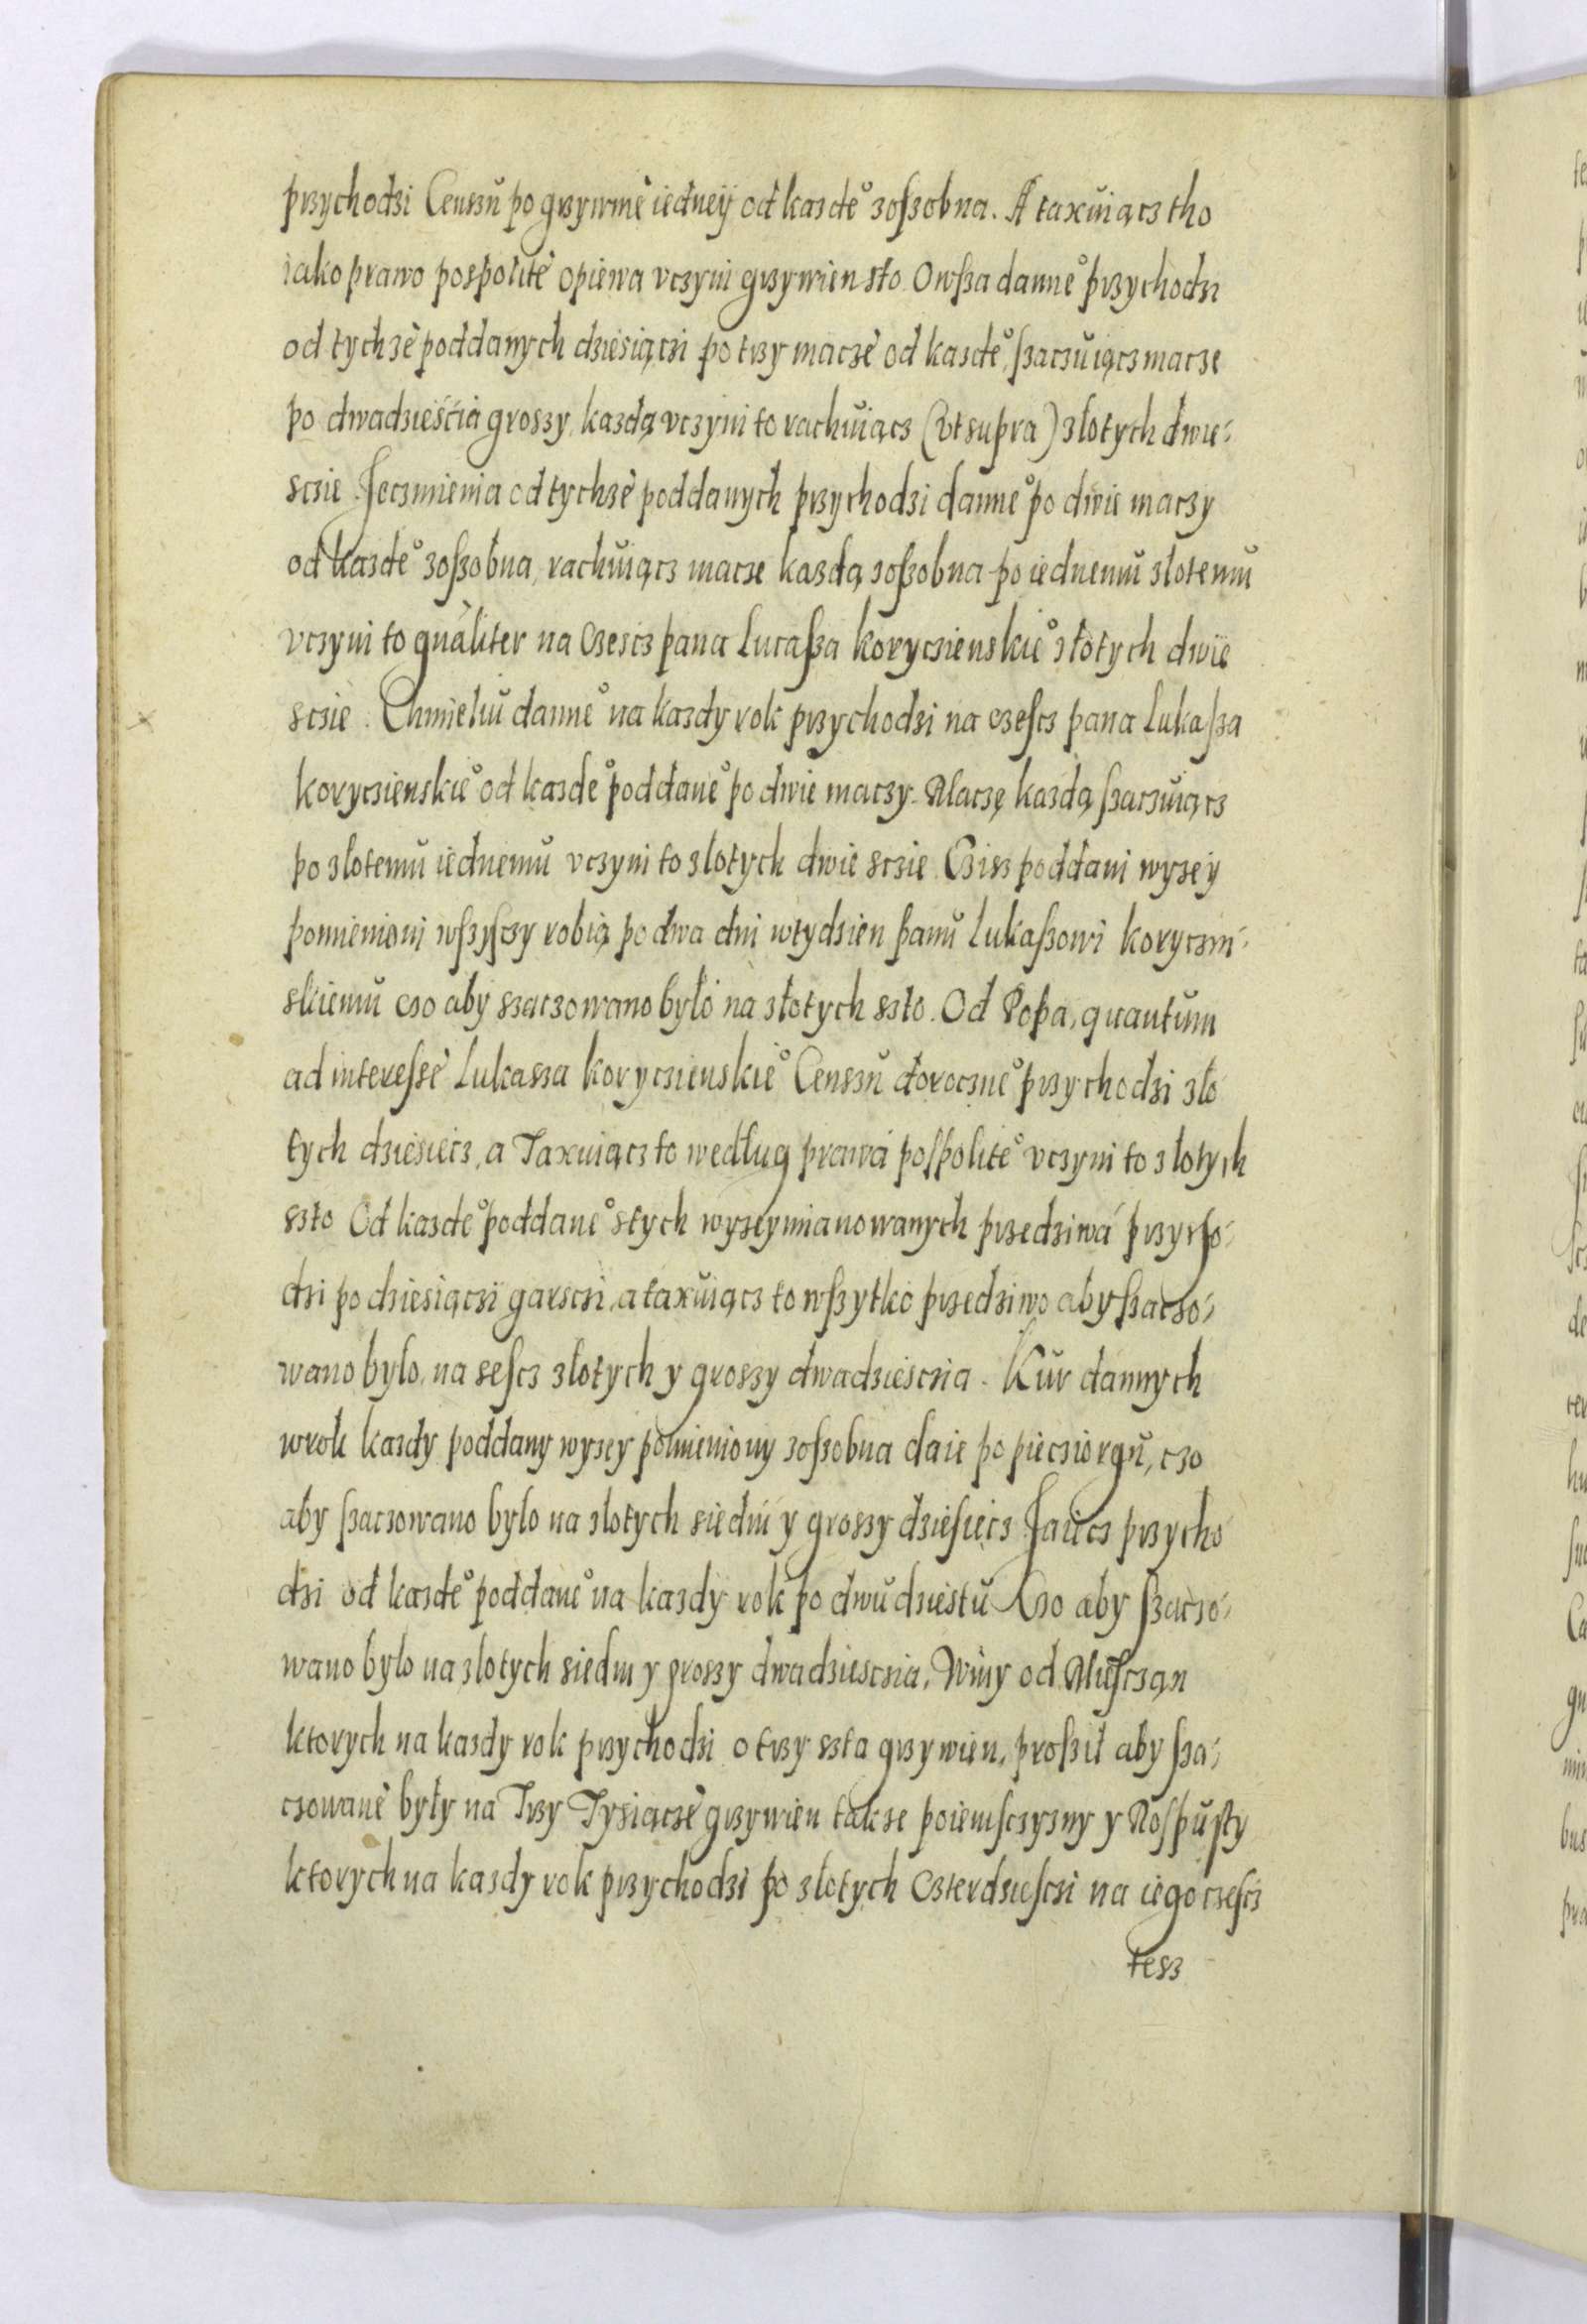 przychodzi Censzu po grzywnie iedneÿ od kazde° zoszobna. A taxuiącz tho
iako prawo pospolite opiewa vczyni grzywien sto Owsza danne° przychodzi
od tychze poddanych dziesiączi po trzy macze od kazde°, szaczuiącz macze
po dwadzieścia groszy kazdą vczyni to rachuiącz (vt supra) złotych dwie-
sczie Jeczmienia od tychze poddanych przychodzi danne° po dwie maczy
od kazde° zoszobna, rachuiącz macze kazdą zoszobna po iednemu złotemu
vczyni to qualiter na Czescz pana Lucasza koryczienskie° złotych dwie
sczie. Chmieliu danne° na kazdy rok przychodzi na czescz pana Lukasza
koryczienskie° od kazde° poddane° po dwie maczy. Maczę kazdą szaczuiącz
po złotemu iednemu vczyni to złotych dwie sczie Czisz poddani wyzeÿ
pomienioni wszysczy robią po dwa dni wtydzien panu Lukaszowi koryczin-
skiemu czo aby szaczowano było na złotych szto. Od Popa, quantum
ad interesse Lukasza koryczienskie° Censzu doroczne° przychodzi zło
tych dziesiecz, a Taxuiącz to według prawa pospolite° vczyni to złotych
szto Od kazde° poddane° stych wyzeymianowanych przedziwa przycho-
dzi po dziesiączi garsczi, a taxuiącz to wszytko przedziwo aby szaczo-
wano było, na sescz złotych y groszy dwadziesczia. Kur dannych
wrok kazdy poddany wyzey pomieniony zoszobna daie po piecziorgu, czo
aby szaczowano było na złotych siedm y groszy dziesiecz Jaiecz przycho
dzi od kazde° poddane° na kazdy rok po dwudziestu Czo aby szaczo-
wano było na złotych siedm y groszy dwadziesczia, Winy od Miesczan
ktorych na kazdy rok przychodzi o trzy szta grzywien, proszil aby sza-
czowane były na Trzy Tysiącze grzywien takze poiemsczyzny y Rospusty
ktorych na kazdy rok przychodzi po złotych Czterdziesczi na iego czescz
tesz